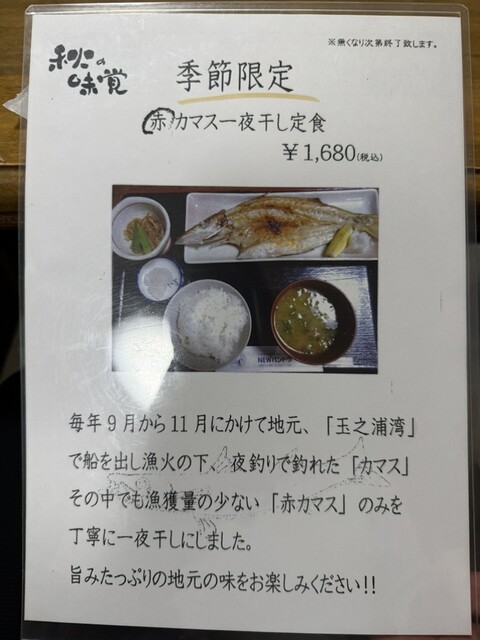 ※無くなり次第終了致します。
秋の味覚
季節限定
赤カマス一夜干し定食
￥1,680(税込)
NEWパンドラ
毎年９月から11月にかけて地元、「玉之浦湾」
で船を出し漁火の下、夜釣りで釣れた「カマス」
その中でも漁獲量の少ない「赤カマス」のみを
丁寧に一夜干しにしました。
旨みたっぷりの地元の味をお楽しみください!!